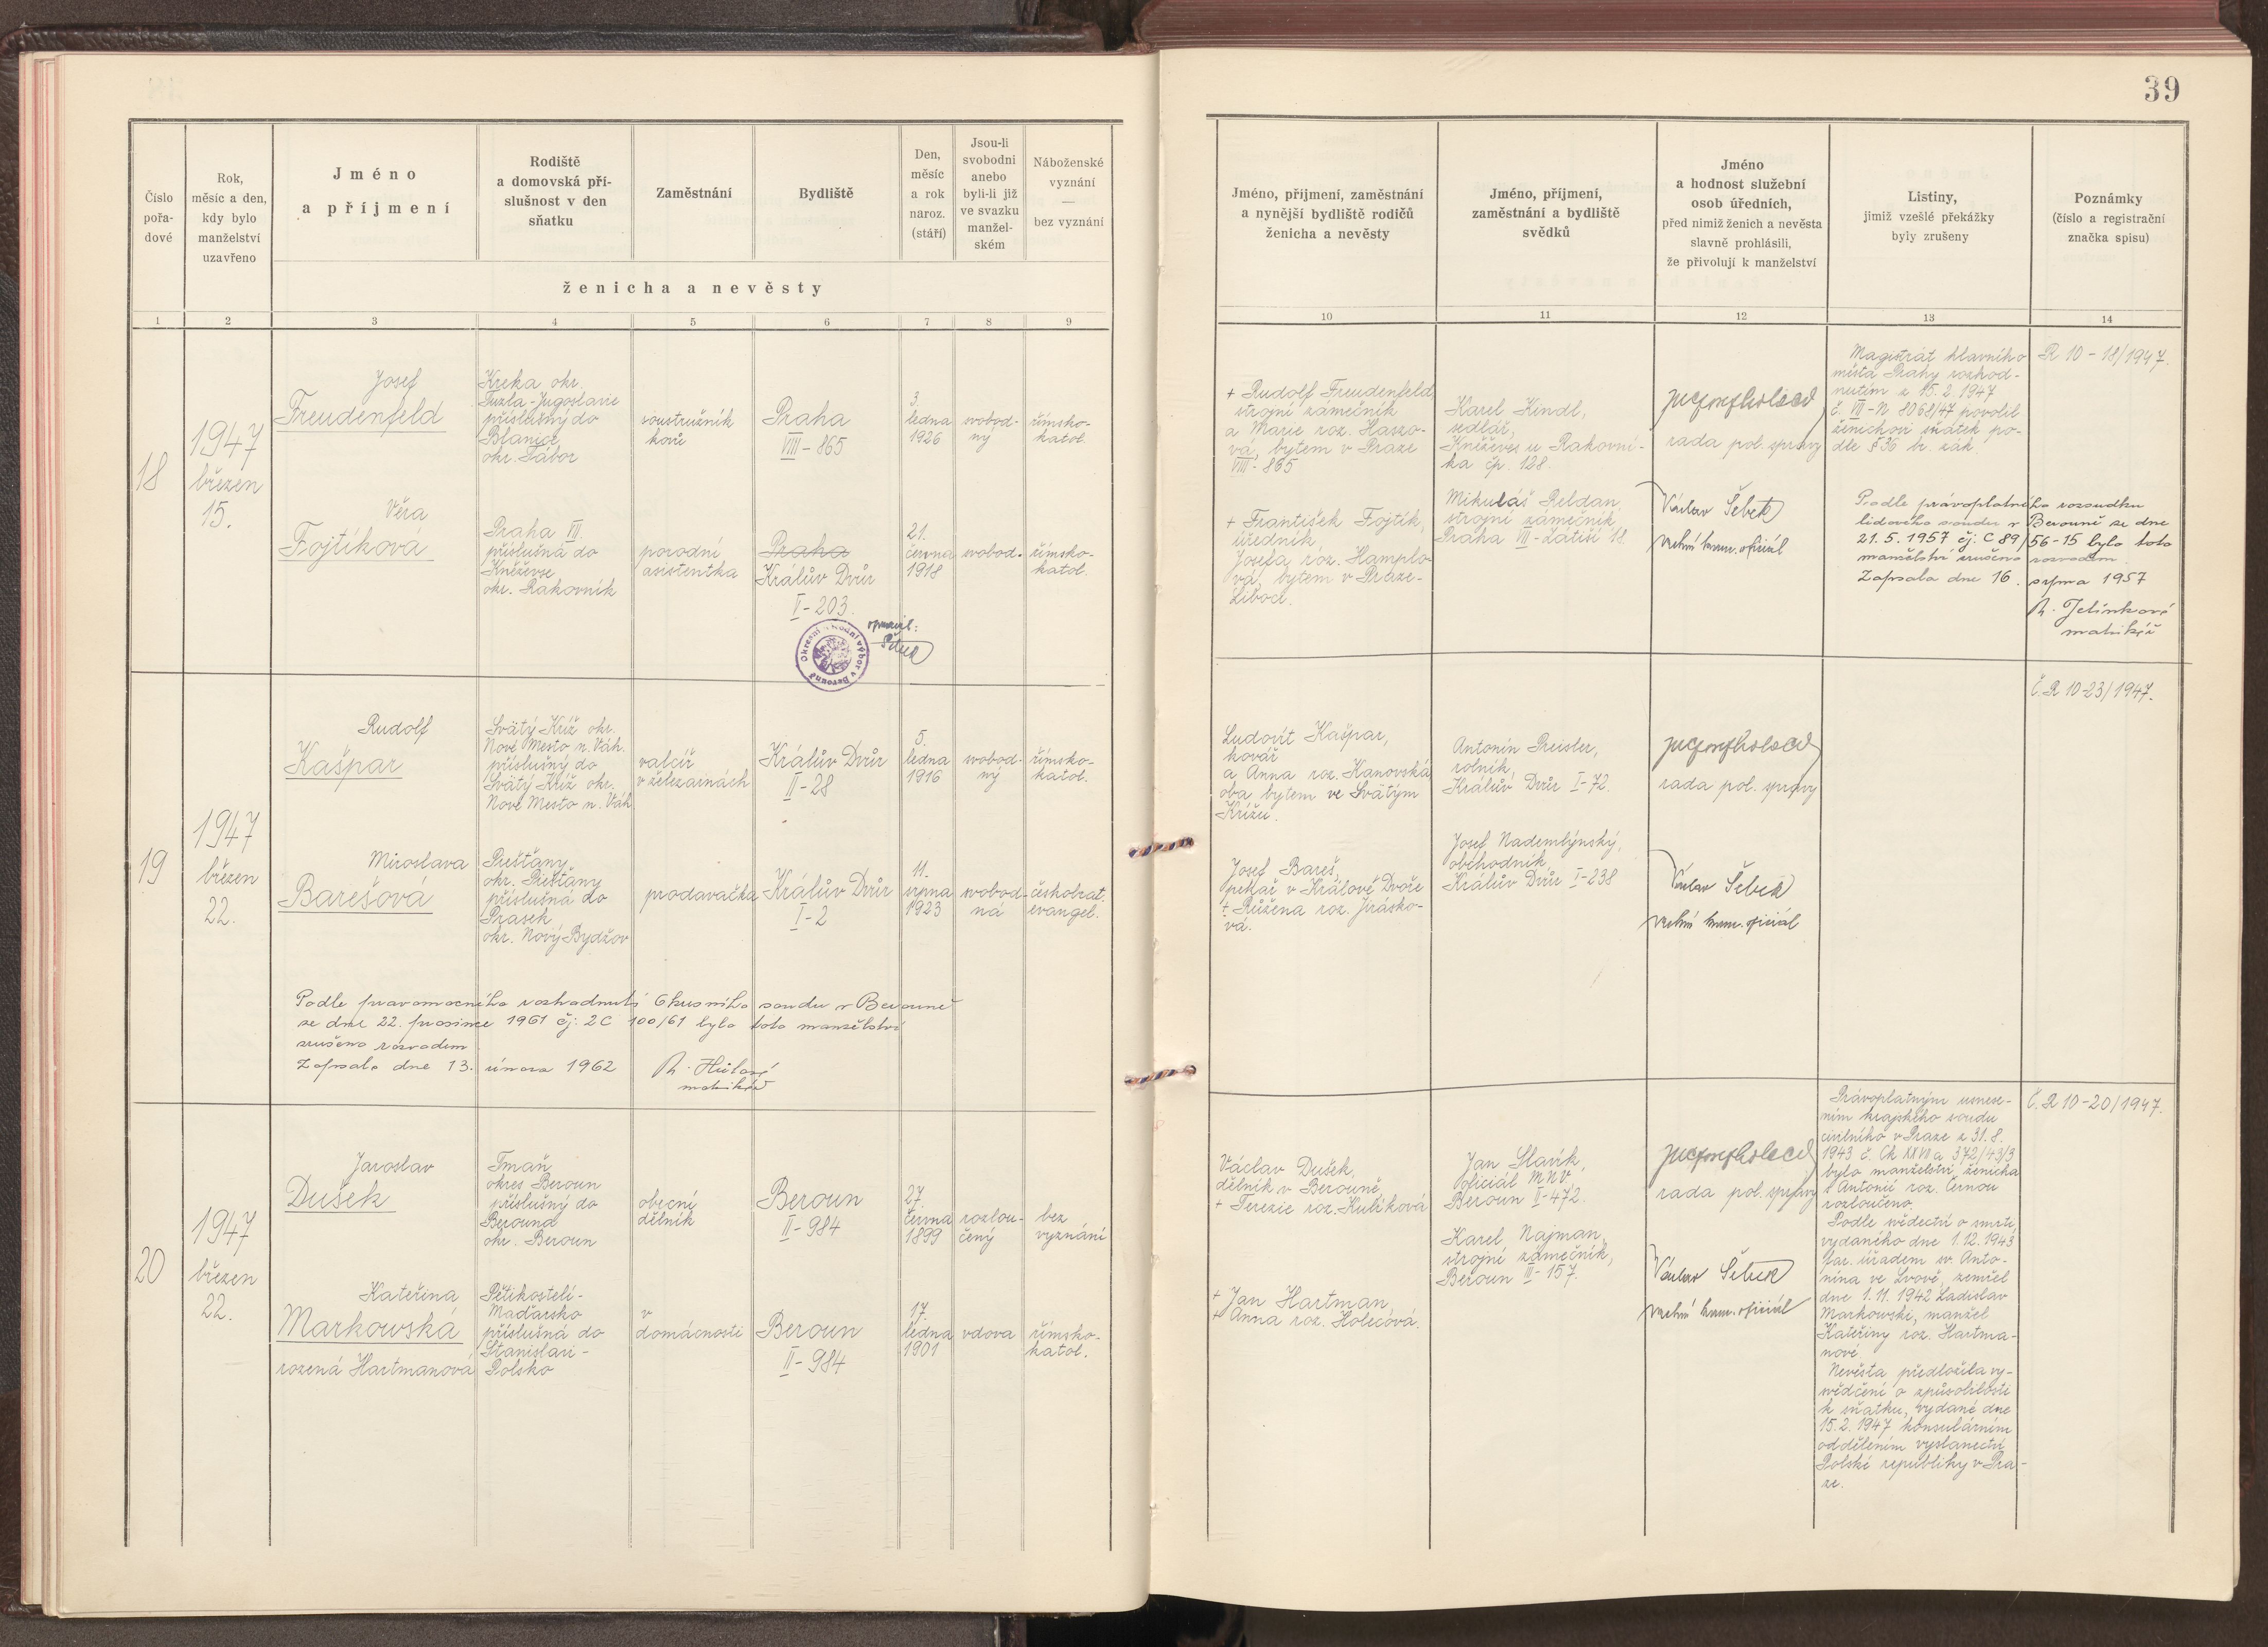 39
Číslo
pořa-
dové
Rok,
měsíc a den,
kdy bylo
manželství
uzavřeno
Jméno
a příjmení
Rodiště
a domovská pří-
slušnost v den
sňatku
Zaměstnání
Bydliště
Den,
měsíc
a rok
naroz.
(stáří)
Jsou-li
svobodni
anebo
byli-li již
ve svazku
manžel-
ském
Náboženské
vyznání
—
bez vyznání
ženicha a nevěsty
Jméno, příjmení, zaměstnání
a nynější bydliště rodičů
ženicha a nevěsty
Jméno, příjmení,
zaměstnání a bydliště
svědků
Jméno
a hodnost služební
osob úředních,
před nimiž ženich a nevěsta
slavně prohlásili,
že přivolují k manželství
Listiny,
jimiž vzešlé překážky
byly zrušeny
Poznámky
(číslo a registrační
značka spisu)
1 2 3 4 5 6 7 8 9 10 11 12 13 14
18
1947
březen
15.
Josef
Freudenfeld
Kreka okr.
Tuzla-Jugoslavie
příslušný do
Blanice
okr. Tábor
soustružník
kovů
Praha
VIII-865
3.
ledna
1926
svobod-
ný
římsko-
katol.
+ Rudolf Freudenfeld,
strojní zámečník
a Marie roz. Haszo-
vá, bytem v Praze
VIII-865
Karel Kindl,
sedlář,
Kněževes u Rakovní-
ka čp. 128.
rada pol. správy
Magistrát hlavního
města Prahy rozhod-
nutím z 15. 2. 1947
č. VII-N 8068/47 povolil
ženichovi sňatek po-
dle § 36 br. zák.
R 10-18/1947.
Věra
Fojtíková
Praha VII
příslušná do
Kněževse
okr. Rakovník
porodní
asistentka
Praha
Králův Dvůr
I-203.
21.
června
1918
svobod.
římsko-
katol.
opravil:
Šebek
Okresní národní výbor v Berouně
+ František Fojtík,
úředník,
Josefa roz. Hamplo-
vá, bytem v Praze-
Liboci.
Mikuláš Peldan,
strojní zámečník,
Praha VII-Zátiší 18.
Václav Šebek
vrchní kanc. oficiál
Podle právoplatného rozsudku
lidového soudu v Berouně ze dne
21. 5. 1957 čj: C 89/56-15 bylo toto
manželství zrušeno rozvodem.
Zapsala dne 16. srpna 1957
R. Jelínková
matrikář
19
1947
březen
22.
Rudolf
Kašpar
Svätý Kríž okr.
Nové Mesto n. Váh.
příslušný do
Svätý Kríž okr.
Nové Mesto n. Váh.
valcíř
v železárnách
Králův Dvůr
II-28
5.
ledna
1916
svobod-
ný
římsko-
katol.
Ludovít Kašpar,
kovář
a Anna roz. Kanovská
oba bytem ve Svätým
Krížu.
Antonín Preisler,
rolník,
Králův Dvůr I-72.
rada pol. správy
Č. R 10-23/1947.
Miroslava
Barešová
Piešťany
okr. Piešťany
příslušná do
Prasek
okr. Nový Bydžov
prodavačka
Králův Dvůr
I-2
11.
srpna
1923
svobod-
ná
českobrat.
evangel.
Josef Bareš,
pekař v Králově Dvoře
+ Růžena roz. Jirásko-
vá.
Josef Nademlýnský,
obchodník,
Králův Dvůr I-238
Václav Šebek
vrchní kanc. oficiál
Podle pravomocného rozhodnutí Okresního soudu v Berouně
ze dne 22. prosince 1961 čj: 2C 100/61 bylo toto manželství
zrušeno rozvodem.
Zapsala dne 13. února 1962
R. Hůlová
matrikář
20
1947
březen
22.
Jaroslav
Dušek
Tmaň
okres Beroun
příslušný do
Berouna
okr. Beroun
obecní
dělník
Beroun
II-984
27.
června
1899
rozlou-
čený
bez
vyznání
Václav Dušek,
dělník v Berouně,
+ Terezie roz. Kulíková
Jan Slavík,
oficiál MNV,
Beroun II-472.
rada pol. správy
Právoplatným usnese-
ním krajského soudu
civilního v Praze z 31. 8.
1943 č. Ck XXVI a 372/43/3
bylo manželství ženicha
s Antonií roz. Černou
rozloučeno.
Č. R 10-20/1947.
Kateřina
Markowská
rozená Hartmanová
Pětikostelí-
Maďarsko
příslušná do
Stanislavi-
Polsko
v
domácnosti
Beroun
II-984
17.
ledna
1901
vdova
římsko-
katol.
+ Jan Hartman,
+ Anna roz. Holecová.
Karel Najman,
strojní zámečník,
Beroun III-157.
Václav Šebek
vrchní kanc. oficiál
Podle svědectví o smrti,
vydaného dne 1. 12. 1943
far. úřadem sv. Anto-
nína ve Lvově, zemřel
dne 1. 11. 1942 Ladislav
Markowski, manžel
Kateřiny roz. Hartma-
nové
Nevěsta předložila vy-
svědčení o způsobilosti
k sňatku, vydané dne
15. 2. 1947 konsulárním
oddělením vyslanectví
Polské republiky v Pra-
ze.